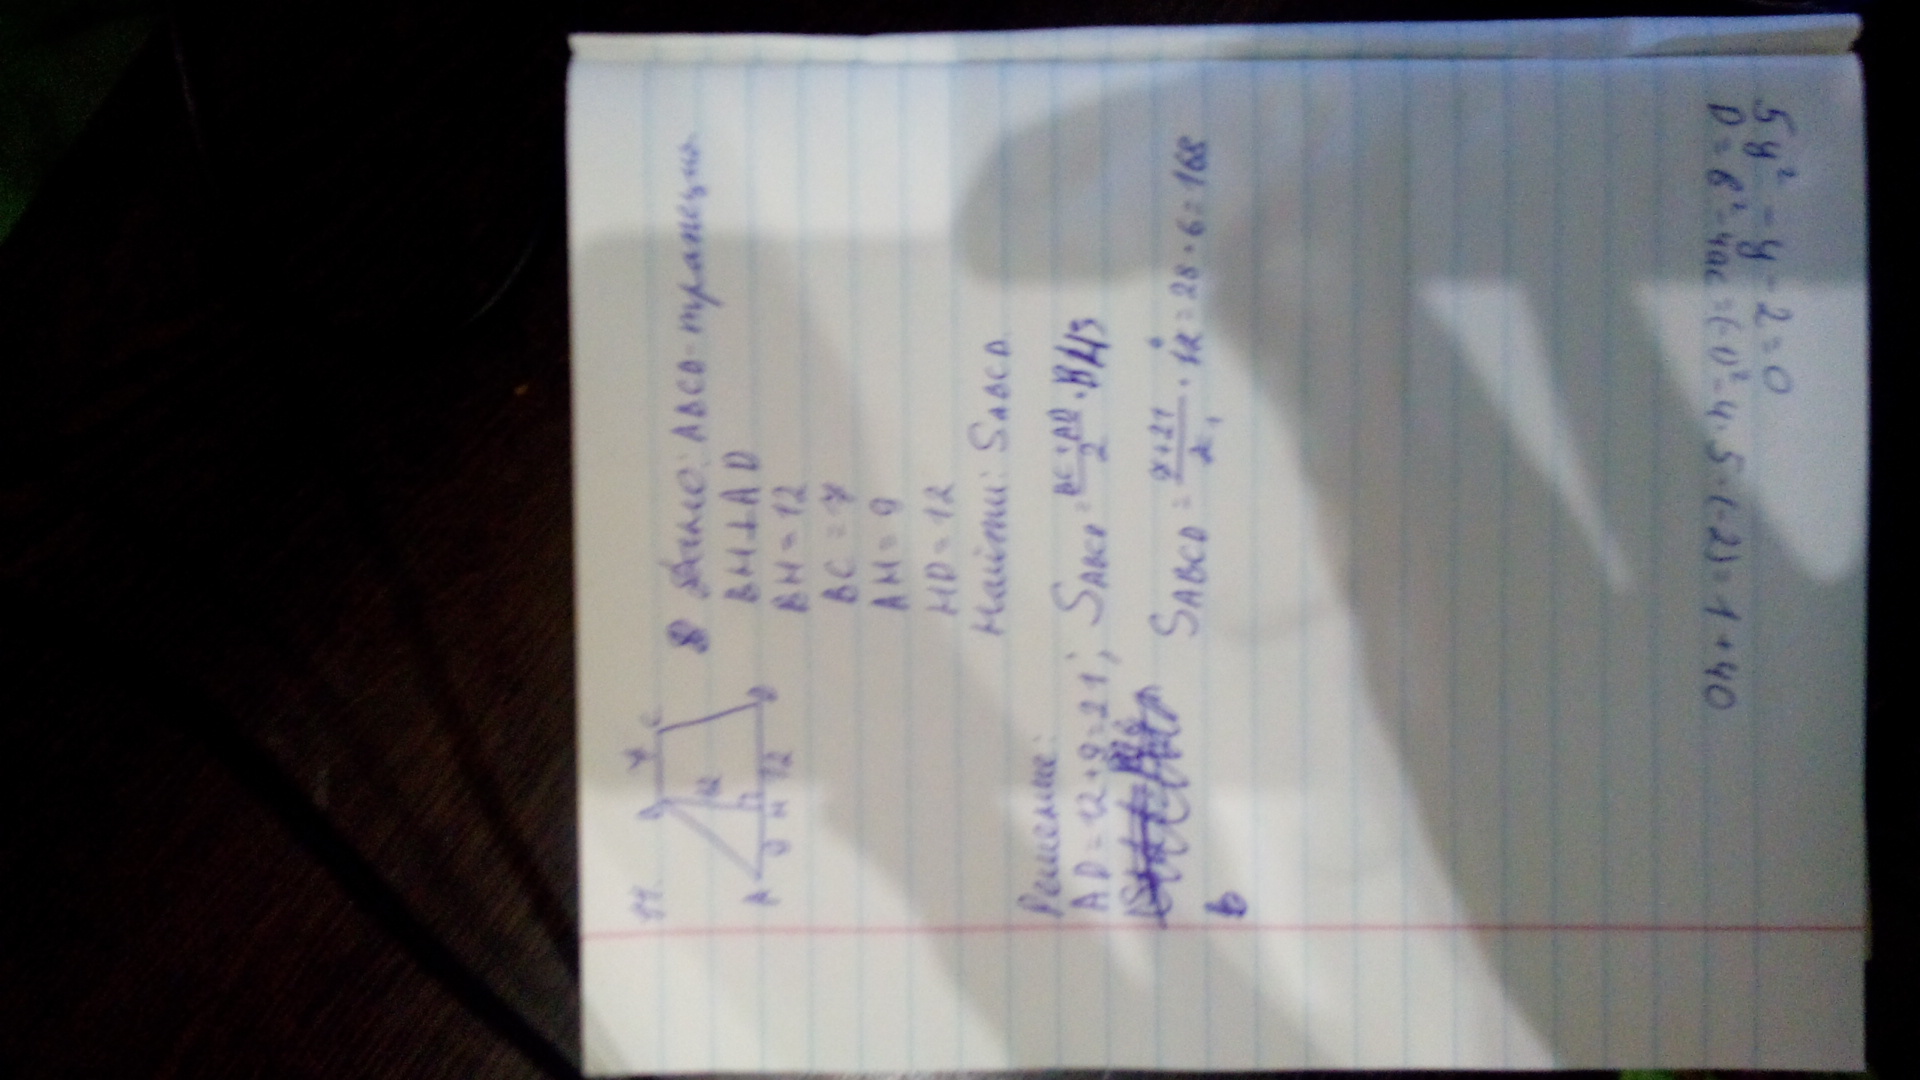 11.
B 7 C
12
A 9 H 12 D
Дано: ABCD - трапеция
BH⊥AD
BH = 12
BC = 7
AH = 9
HD = 12
Найти: S ABCD
Решение:
AD = 12 + 9 = 21; S ABCD = BC + AD / 2 · BH
S ABCD = 7 + 21 / 2 · 12 = 28 · 6 = 168
5y² - y - 2 = 0
D = b² - 4ac = (-1)² - 4 · 5 · (-2) = 1 + 40